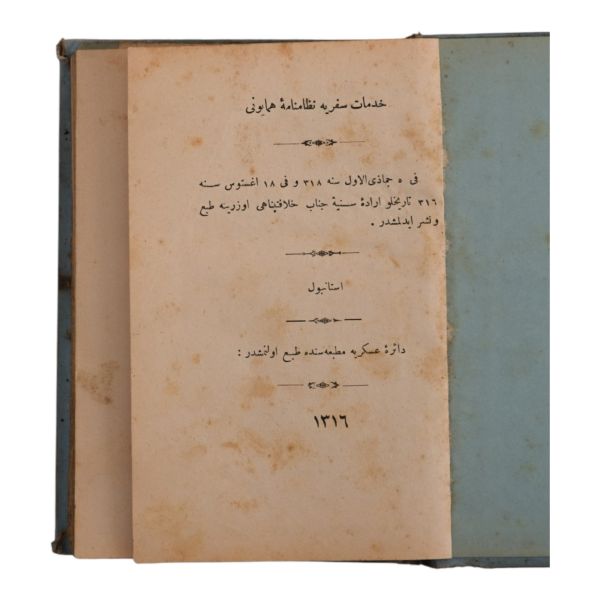 خدمات سفریه نظامنامهٔ همایونی
فی ٥ جماذی‌الاول سنه ٣١٨ و فی ١٨ اغستوس سنه
٣١٦ تاریخلو ارادهٔ سنیهٔ جناب خلافتپناهی اوزرینه طبع
و نشر ایدلمشدر .
استانبول
دائرهٔ عسکریه مطبعه‌سنده طبع اولنمشدر :
١٣١٦